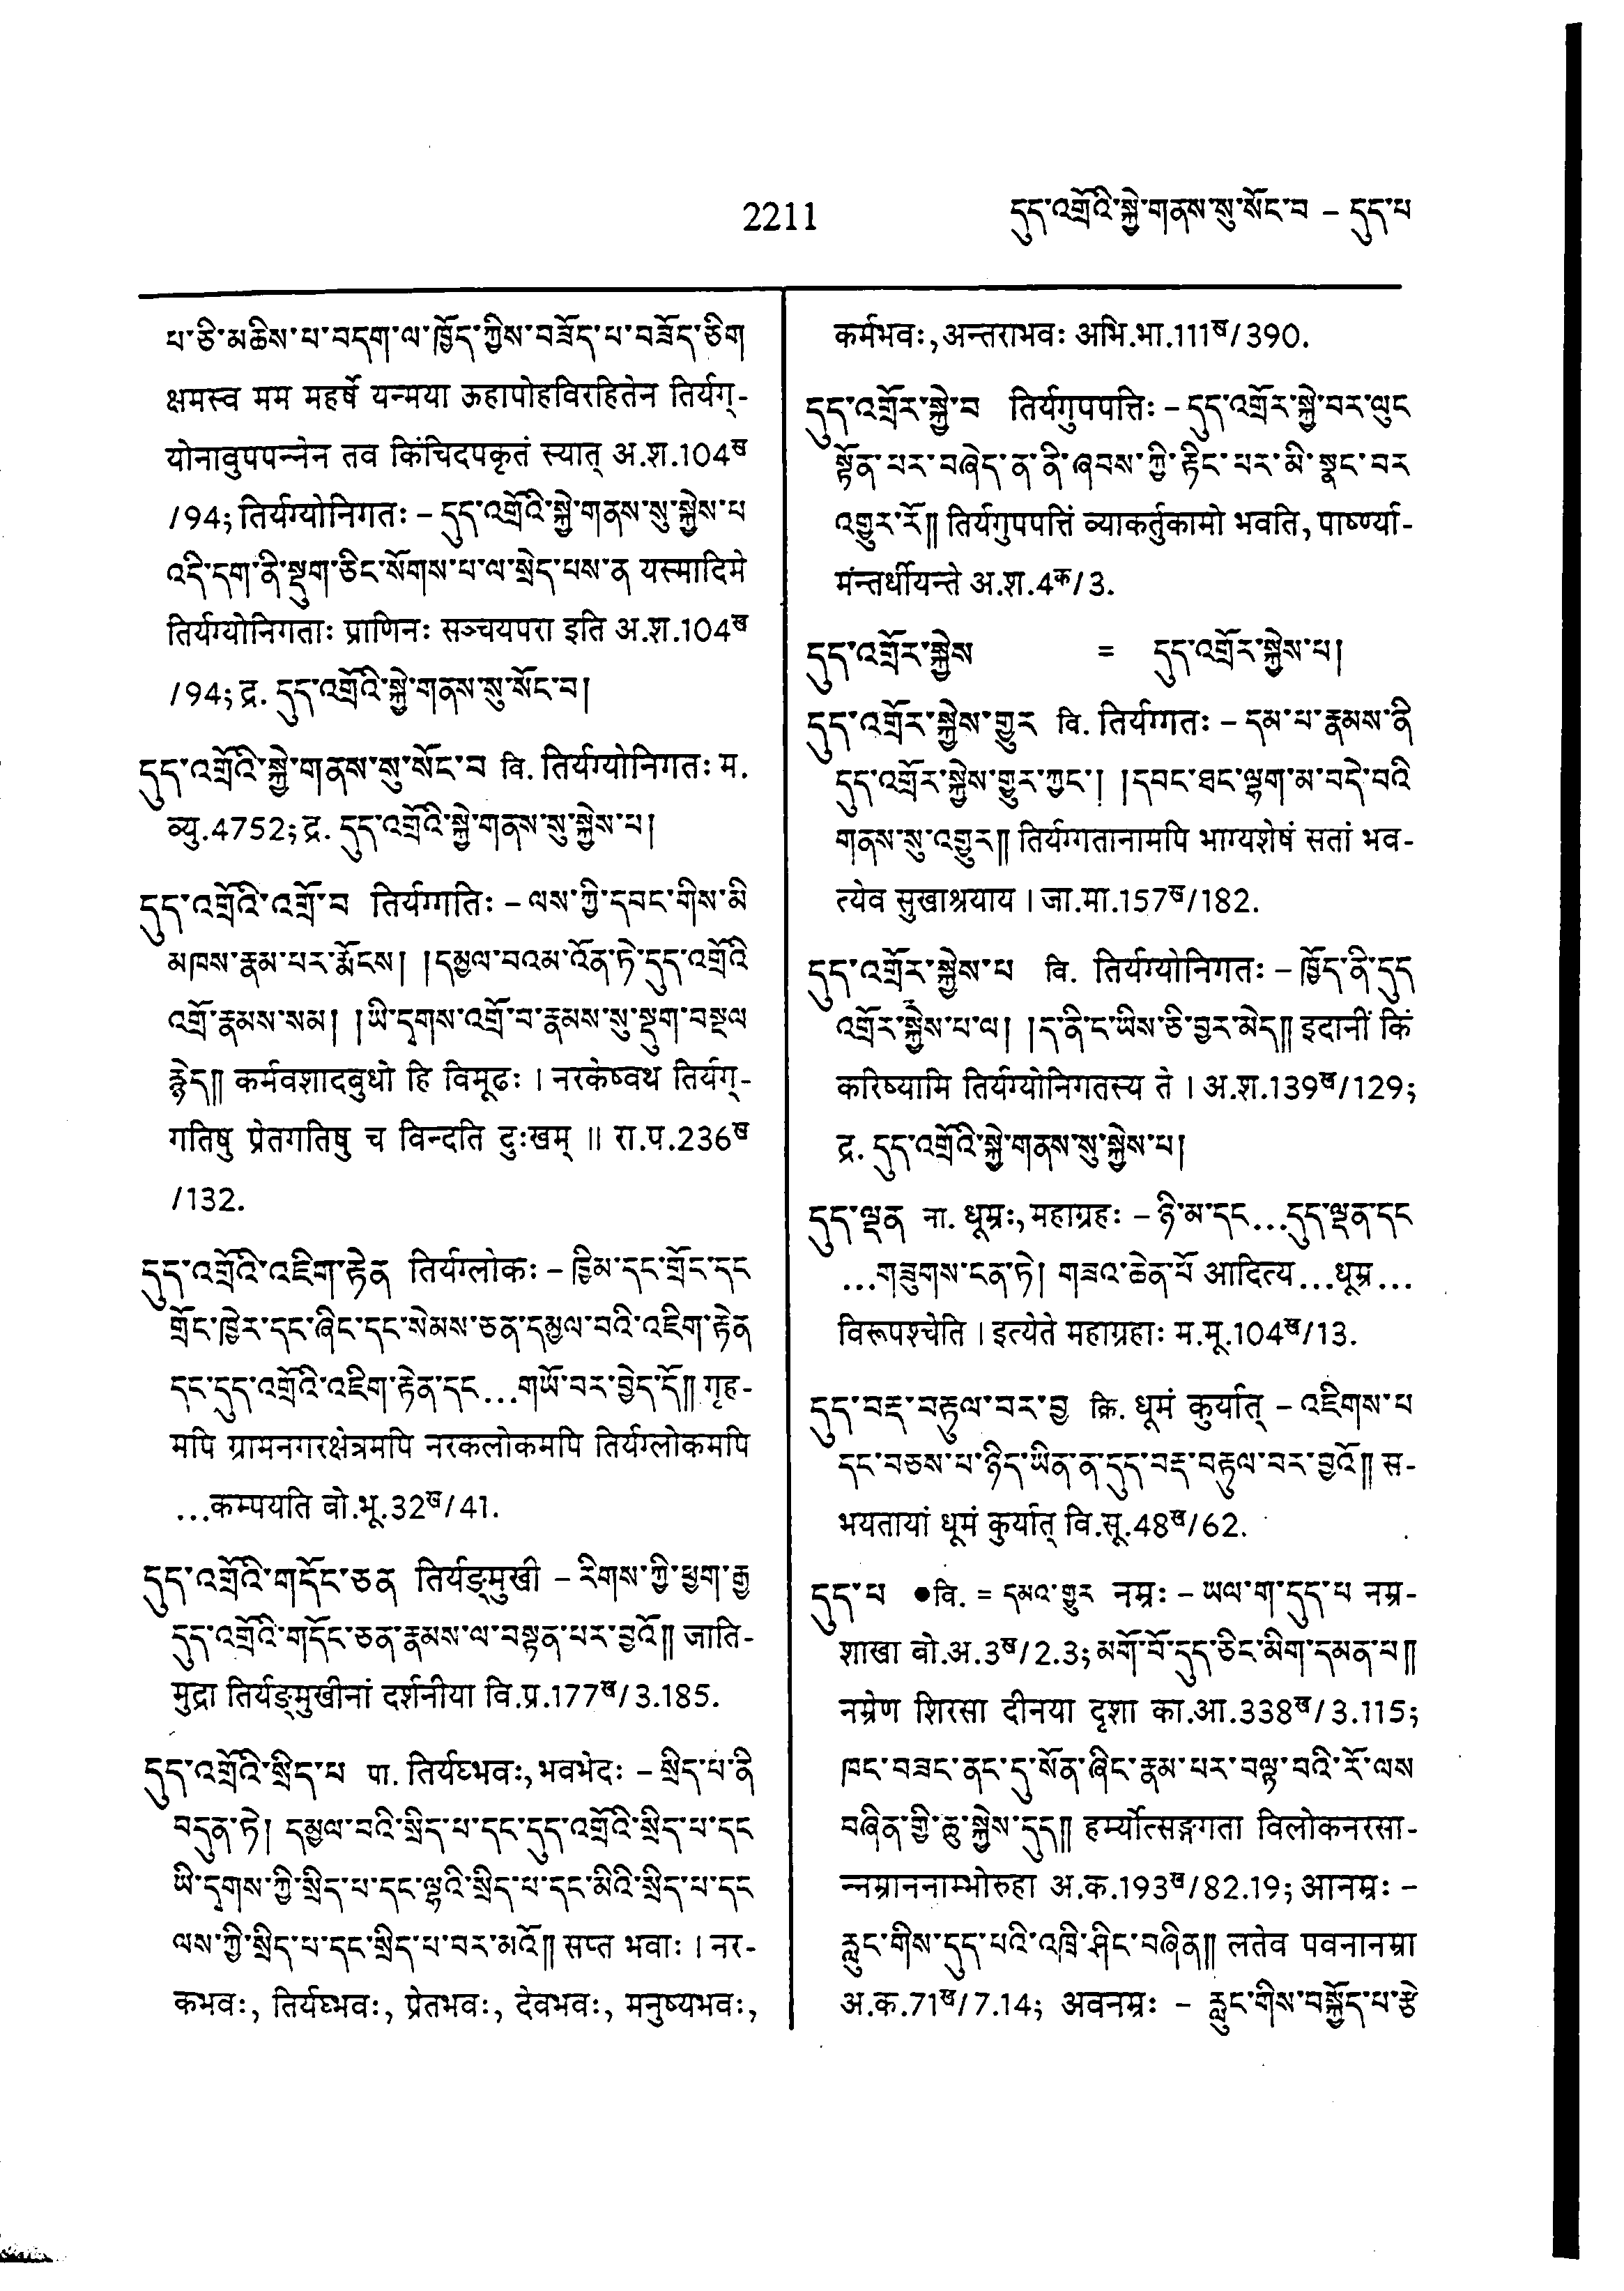 2211
དུད་འགྲོའི་སྐྱེ་གནས་སུ་སོང་བ – དུད་པ
པ་ཅི་མཆིས་པ་བདག་ལ་ཁྱོད་ཀྱིས་བཟོད་པ་བཟོད་ཅིག
क्षमस्व मम महर्षे यन्मया ऊहापोहविरहितेन तिर्यग्-
योनावुपपन्नेन तव किंचिदपकृतं स्यात् अ.श.104ख
/94; तिर्यग्योनिगतः – དུད་འགྲོའི་སྐྱེ་གནས་སུ་སྐྱེས་པ
འདི་དག་ནི་སྡུག་ཅིང་སོགས་པ་ལ་སྲེད་པས་ན यस्मादिमे
तिर्यग्योनिगताः प्राणिनः सञ्चयपरा इति अ.श.104ख
/94; द्र. དུད་འགྲོའི་སྐྱེ་གནས་སུ་སོང་བ།
དུད་འགྲོའི་སྐྱེ་གནས་སུ་སོང་བ वि. तिर्यग्योनिगतः म.
व्यु.4752; द्र. དུད་འགྲོའི་སྐྱེ་གནས་སུ་སྐྱེས་པ།
དུད་འགྲོའི་འགྲོ་བ तिर्यग्गतिः – ལས་ཀྱི་དབང་གིས་མི
མཁས་རྣམ་པར་རྨོངས། །དམྱལ་བའམ་འོན་ཏེ་དུད་འགྲོའི
འགྲོ་རྣམས་སམ། །ཡི་དྭགས་འགྲོ་བ་རྣམས་སུ་སྡུག་བསྔལ
རྙེད༎ कर्मवशादबुधो हि विमूढः । नरकेष्वथ तिर्यग्-
गतिषु प्रेतगतिषु च विन्दति दुःखम् ॥ रा.प.236ख
/132.
དུད་འགྲོའི་འཇིག་རྟེན तिर्यग्लोकः – ཁྱིམ་དང་གྲོང་དང
གྲོང་ཁྱེར་དང་ཞིང་དང་སེམས་ཅན་དམྱལ་བའི་འཇིག་རྟེན
དང་དུད་འགྲོའི་འཇིག་རྟེན་དང...གཡོ་བར་བྱེད་དོ༎ गृह-
मपि ग्रामनगरक्षेत्रमपि नरकलोकमपि तिर्यग्लोकमपि
...कम्पयति बो.भू.32ख/41.
དུད་འགྲོའི་གདོང་ཅན तिर्यङ्मुखी – རིགས་ཀྱི་ཕྱག་རྒྱ
དུད་འགྲོའི་གདོང་ཅན་རྣམས་ལ་བསྟན་པར་བྱའོ༎ जाति-
मुद्रा तिर्यङ्मुखीनां दर्शनीया वि.प्र.177ख/3.185.
དུད་འགྲོའི་སྲིད་པ पा. तिर्यग्भवः, भवभेदः – སྲིད་པ་ནི
བདུན་ཏེ། དམྱལ་བའི་སྲིད་པ་དང་དུད་འགྲོའི་སྲིད་པ་དང
ཡི་དྭགས་ཀྱི་སྲིད་པ་དང་ལྷའི་སྲིད་པ་དང་མིའི་སྲིད་པ་དང
ལས་ཀྱི་སྲིད་པ་དང་སྲིད་པ་བར་མའོ༎ सप्त भवाः । नर-
कभवः, तिर्यग्भवः, प्रेतभवः, देवभवः, मनुष्यभवः,
कर्मभवः, अन्तराभवः अभि.भा.111ख/390.
དུད་འགྲོར་སྐྱེ་བ तिर्यगुपपत्तिः – དུད་འགྲོར་སྐྱེ་བར་ལུང
སྟོན་པར་བཞེད་ན་ནི་ཞབས་ཀྱི་རྟིང་པར་མི་སྣང་བར
འགྱུར་རོ༎ तिर्यगुपपत्तिं व्याकर्तुकामो भवति, पार्ष्ण्या-
मंन्तर्धीयन्ते अ.श.4क/3.
དུད་འགྲོར་སྐྱེས = དུད་འགྲོར་སྐྱེས་པ།
དུད་འགྲོར་སྐྱེས་གྱུར वि. तिर्यग्गतः – དམ་པ་རྣམས་ནི
དུད་འགྲོར་སྐྱེས་གྱུར་ཀྱང་། །དབང་ཐང་ལྷག་མ་བདེ་བའི
གནས་སུ་འགྱུར༎ तिर्यग्गतानामपि भाग्यशेषं सतां भव-
त्येव सुखाश्रयाय । जा.मा.157ख/182.
དུད་འགྲོར་སྐྱེས་པ वि. तिर्यग्योनिगतः – ཁྱོད་ནི་དུད
འགྲོར་སྐྱེས་པ་ལ། །ད་ནི་ང་ཡིས་ཅི་བྱར་མེད༎ इदानीं किं
करिष्यामि तिर्यग्योनिगतस्य ते । अ.श.139ख/129;
द्र. དུད་འགྲོའི་སྐྱེ་གནས་སུ་སྐྱེས་པ།
དུད་ལྡན ना. धूम्रः, महाग्रहः – ཉི་མ་དང...དུད་ལྡན་དང
...གཟུགས་ངན་ཏེ། གཟའ་ཆེན་པོ आदित्य...धूम्र...
विरूपश्चेति । इत्येते महाग्रहाः म.मू.104ख/13.
དུད་བརྡ་བརྟུལ་བར་བྱ क्रि. धूमं कुर्यात् – འཇིགས་པ
དང་བཅས་པ་ཉིད་ཡིན་ན་དུད་བརྡ་བརྟུལ་བར་བྱའོ༎ स-
भयतायां धूमं कुर्यात् वि.सू.48ख/62.
དུད་པ ●वि. = དམའ་གྱུར नम्रः – ཡལ་ག་དུད་པ नम्र-
शाखा बो.अ.3ख/2.3; མགོ་བོ་དུད་ཅིང་མིག་དམན་པ༎
नम्रेण शिरसा दीनया दृशा का.आ.338ख/3.115;
ཁང་བཟང་ནང་དུ་སོན་ཞིང་རྣམ་པར་བལྟ་བའི་རོ་ལས
བཞིན་གྱི་ཆུ་སྐྱེས་དུད༎ हर्म्योत्सङ्गगता विलोकनरसा-
न्नम्राननाम्भोरुहा अ.क.193ख/82.19; आनम्रः –
རླུང་གིས་དུད་པའི་འཁྲི་ཤིང་བཞིན༎ लतेव पवनानम्रा
अ.क.71ख/7.14; अवनम्रः – རླུང་གིས་བསྐྱོད་པ་རྩེ